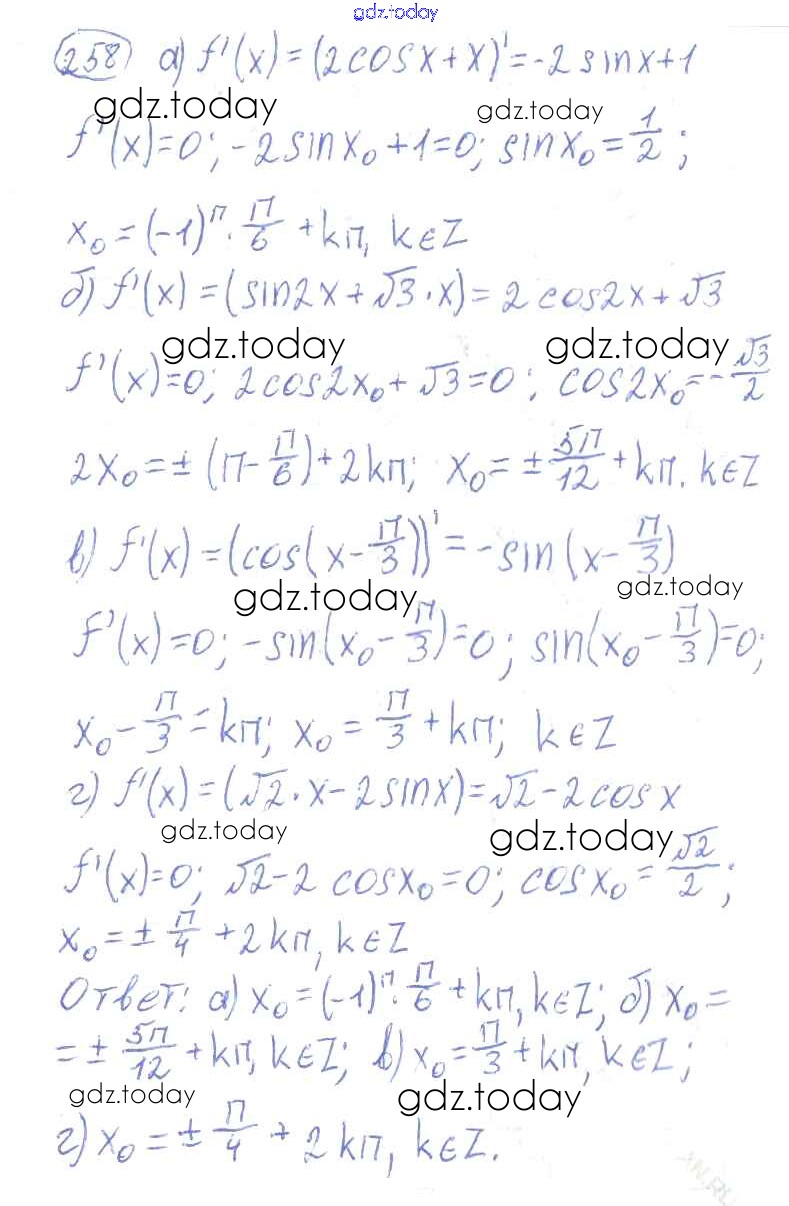 gdz.today
258 а) f'(x) = (2cosx + x)' = -2sinx+1
gdz.today gdz.today
f'(x)=0; -2sinx₀+1=0; sinx₀ = 1/2;
x₀ = (-1)ⁿ · П/6 + kп, k∈Z
б) f'(x) = (sin2x + √3 · x) = 2cos2x + √3
gdz.today gdz.today
f'(x)=0; 2cos2x₀ + √3 = 0; cos2x₀ = -√3/2
2x₀ = ± (П - П/6) + 2kп; x₀ = ± 5П/12 + kп. k∈Z
в) f'(x) = (cos(x - П/3))' = -sin(x - П/3)
gdz.today gdz.today
f'(x)=0; -sin(x₀ - П/3)=0; sin(x₀ - П/3)=0;
x₀ - П/3 = kп; x₀ = П/3 + kп; k∈Z
г) f'(x) = (√2 · x - 2sinx) = √2 - 2cosx
gdz.today gdz.today
f'(x)=0; √2 - 2 cosx₀ = 0; cosx₀ = √2/2;
x₀ = ± П/4 + 2kп, k∈Z
Ответ: а) x₀ = (-1)ⁿ · П/6 + kп, k∈Z; б) x₀ =
= ± 5П/12 + kп, k∈Z; в) x₀ = П/3 + kп, k∈Z;
gdz.today gdz.today
г) x₀ = ± П/4 + 2kп, k∈Z.